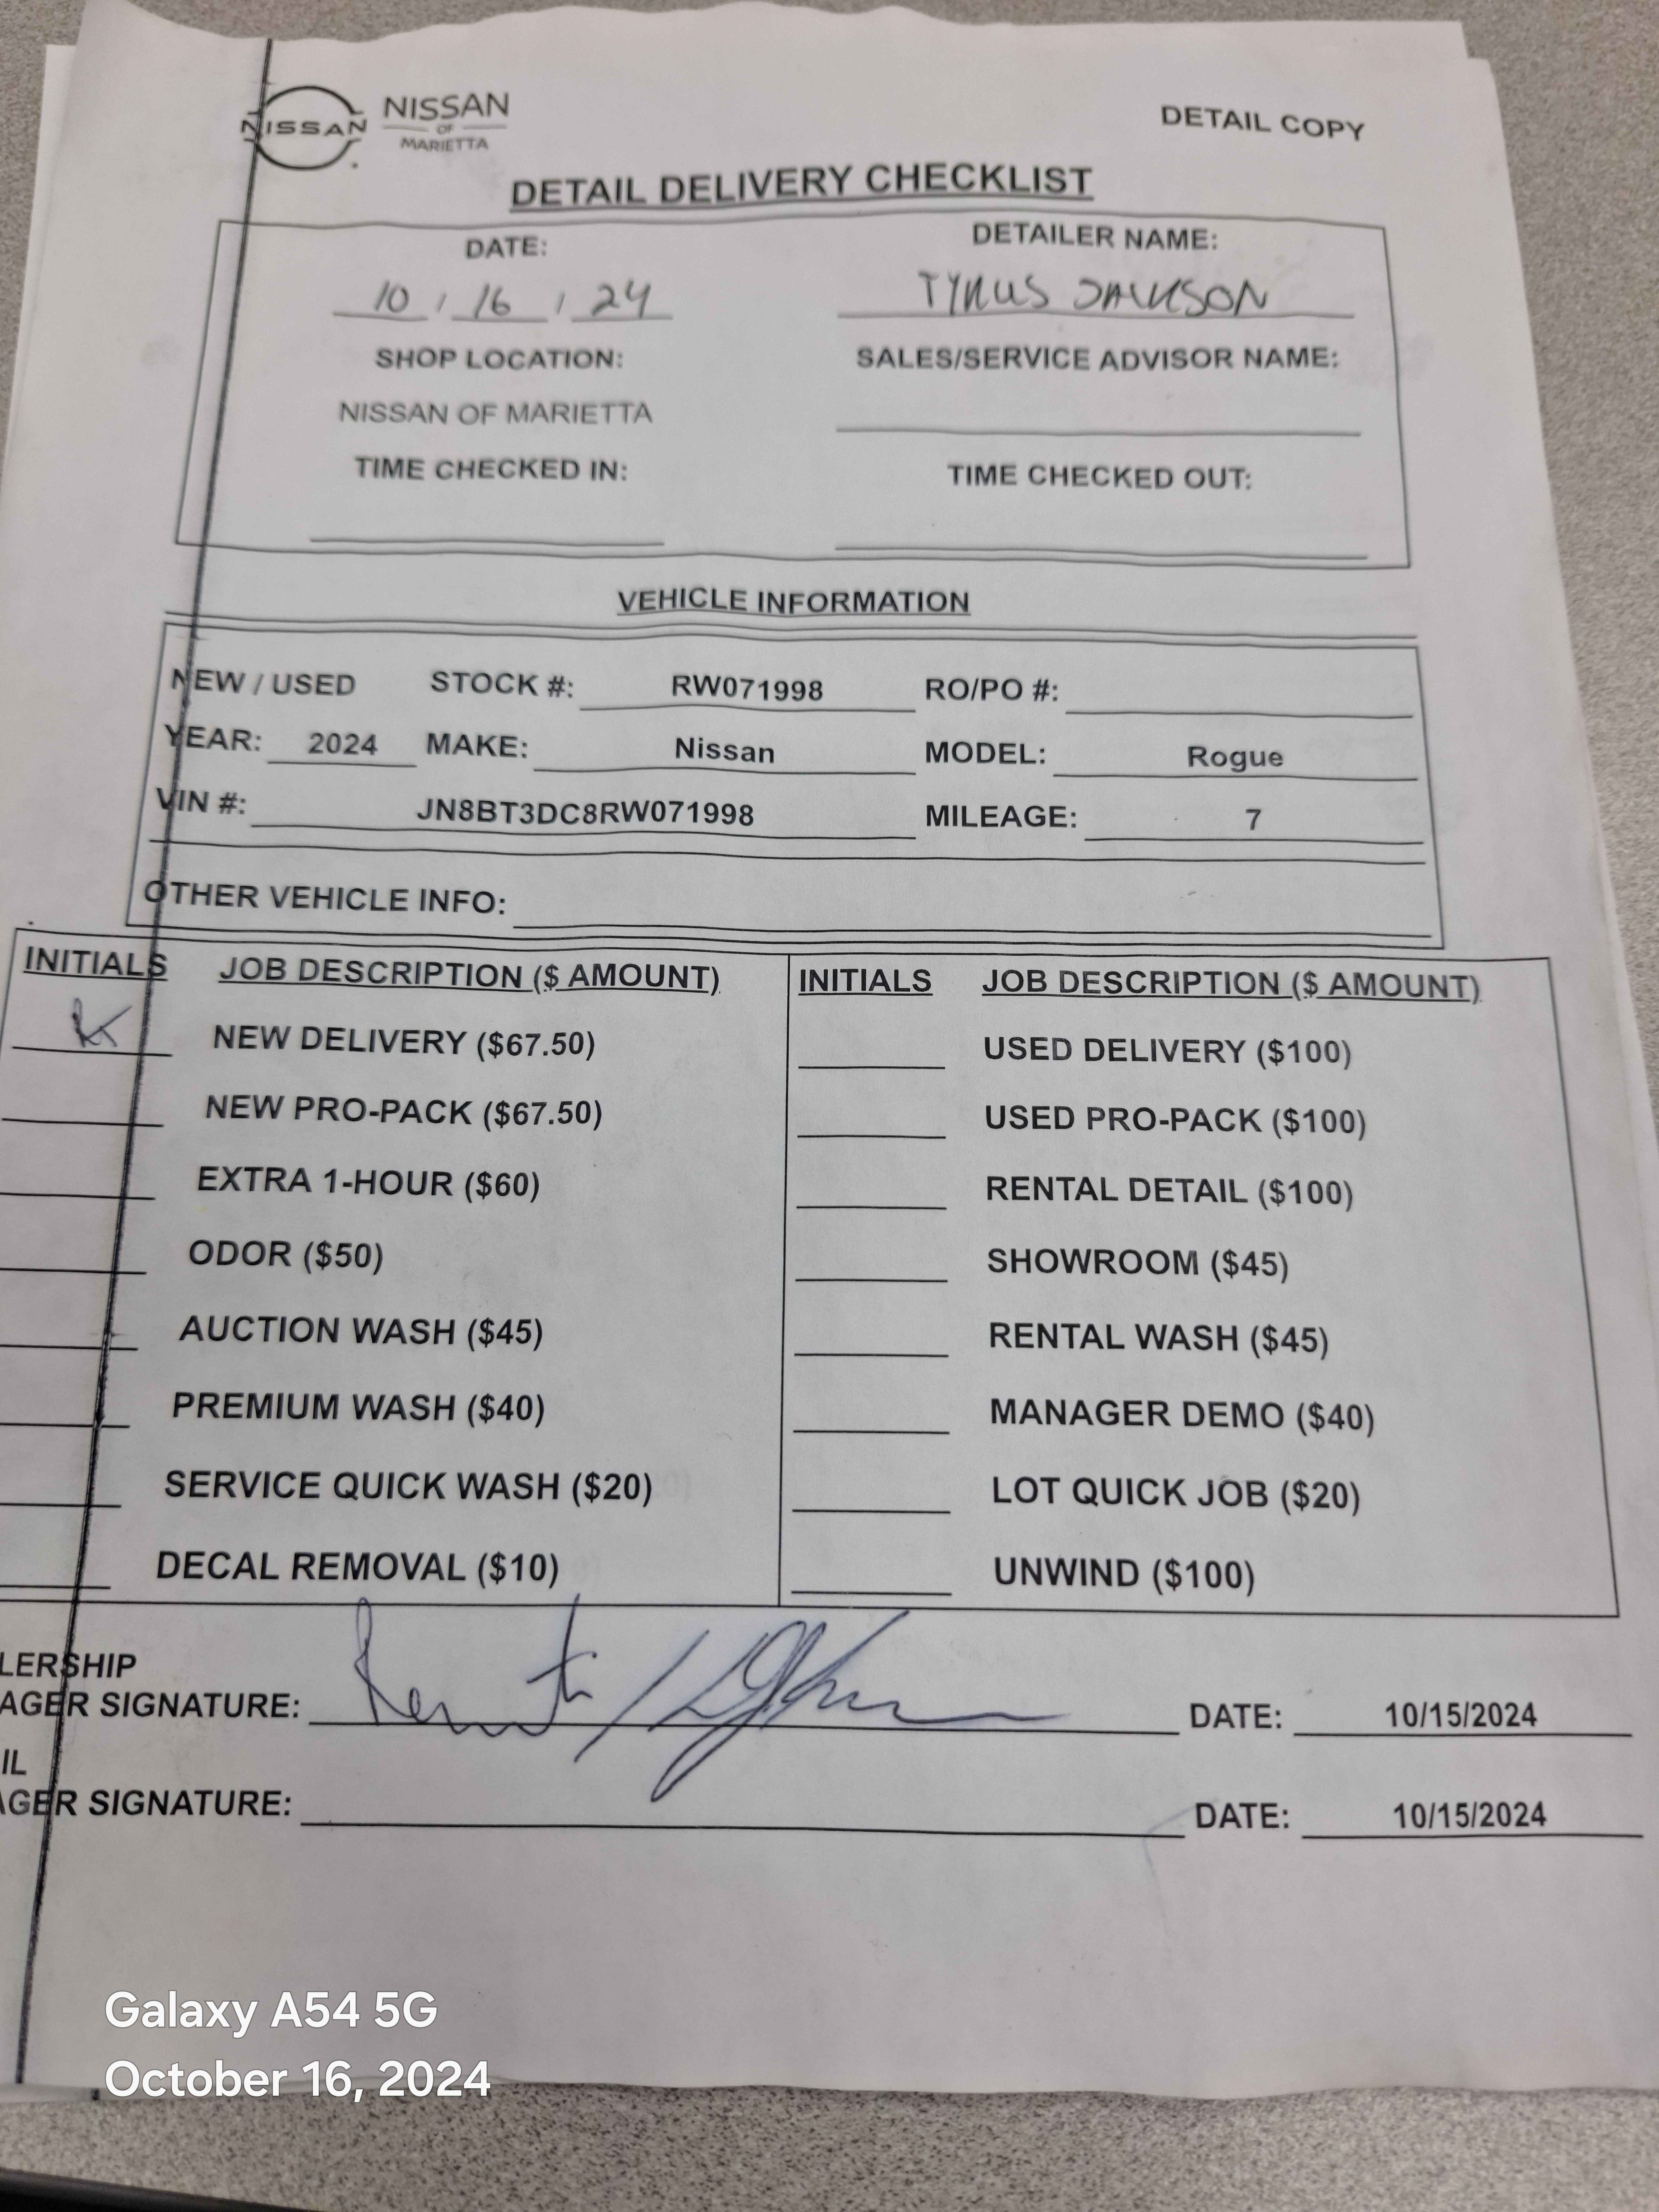 NISSAN
NISSAN
OF
MARIETTA
DETAIL COPY
DETAIL DELIVERY CHECKLIST
DATE: DETAILER NAME:
10 / 16 / 24 TYRUS JACKSON
SHOP LOCATION: SALES/SERVICE ADVISOR NAME:
NISSAN OF MARIETTA
TIME CHECKED IN: TIME CHECKED OUT:
VEHICLE INFORMATION
NEW / USED STOCK #: RW071998 RO/PO #:
YEAR: 2024 MAKE: Nissan MODEL: Rogue
VIN #: JN8BT3DC8RW071998 MILEAGE: 7
OTHER VEHICLE INFO:
INITIALS JOB DESCRIPTION ($ AMOUNT) INITIALS JOB DESCRIPTION ($ AMOUNT)
NEW DELIVERY ($67.50) USED DELIVERY ($100)
NEW PRO-PACK ($67.50) USED PRO-PACK ($100)
EXTRA 1-HOUR ($60) RENTAL DETAIL ($100)
ODOR ($50) SHOWROOM ($45)
AUCTION WASH ($45) RENTAL WASH ($45)
PREMIUM WASH ($40) MANAGER DEMO ($40)
SERVICE QUICK WASH ($20) LOT QUICK JOB ($20)
DECAL REMOVAL ($10) UNWIND ($100)
LERSHIP
AGER SIGNATURE: DATE: 10/15/2024
IL
AGER SIGNATURE: DATE: 10/15/2024
Galaxy A54 5G
October 16, 2024